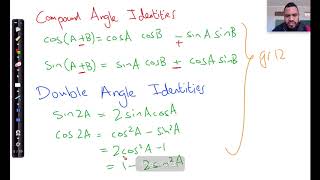 Compound Angle Identities
cos(A±B) = cosA cosB ∓ sinA sinB
Sin(A±B) = sinA cosB ± cosA sinB
gr 12
Double Angle Identities
sin2A = 2sinAcosA
cos2A = cos²A - sin²A
= 2cos²A - 1
= 1 - 2sin²A